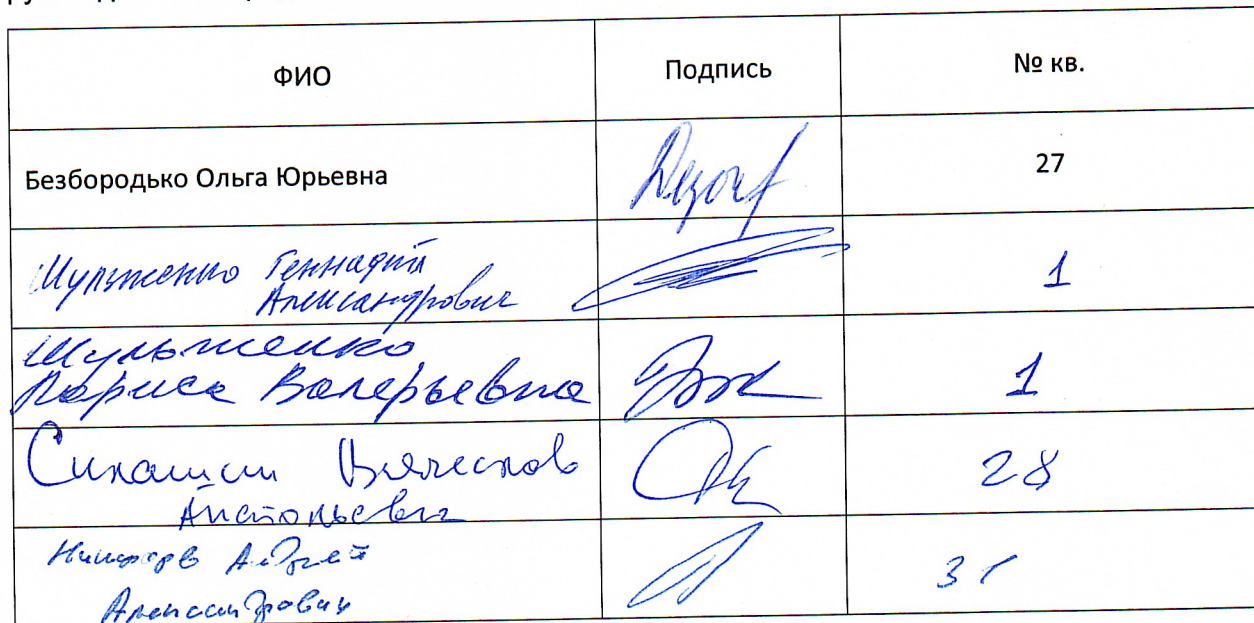 ФИО Подпись № кв.
Безбородько Ольга Юрьевна 27
Шульженко Геннадий
Александрович 1
Шульженко
Лариса Валерьевна 1
Вячеслав 28
Анатольевич
Андрей
Александрович